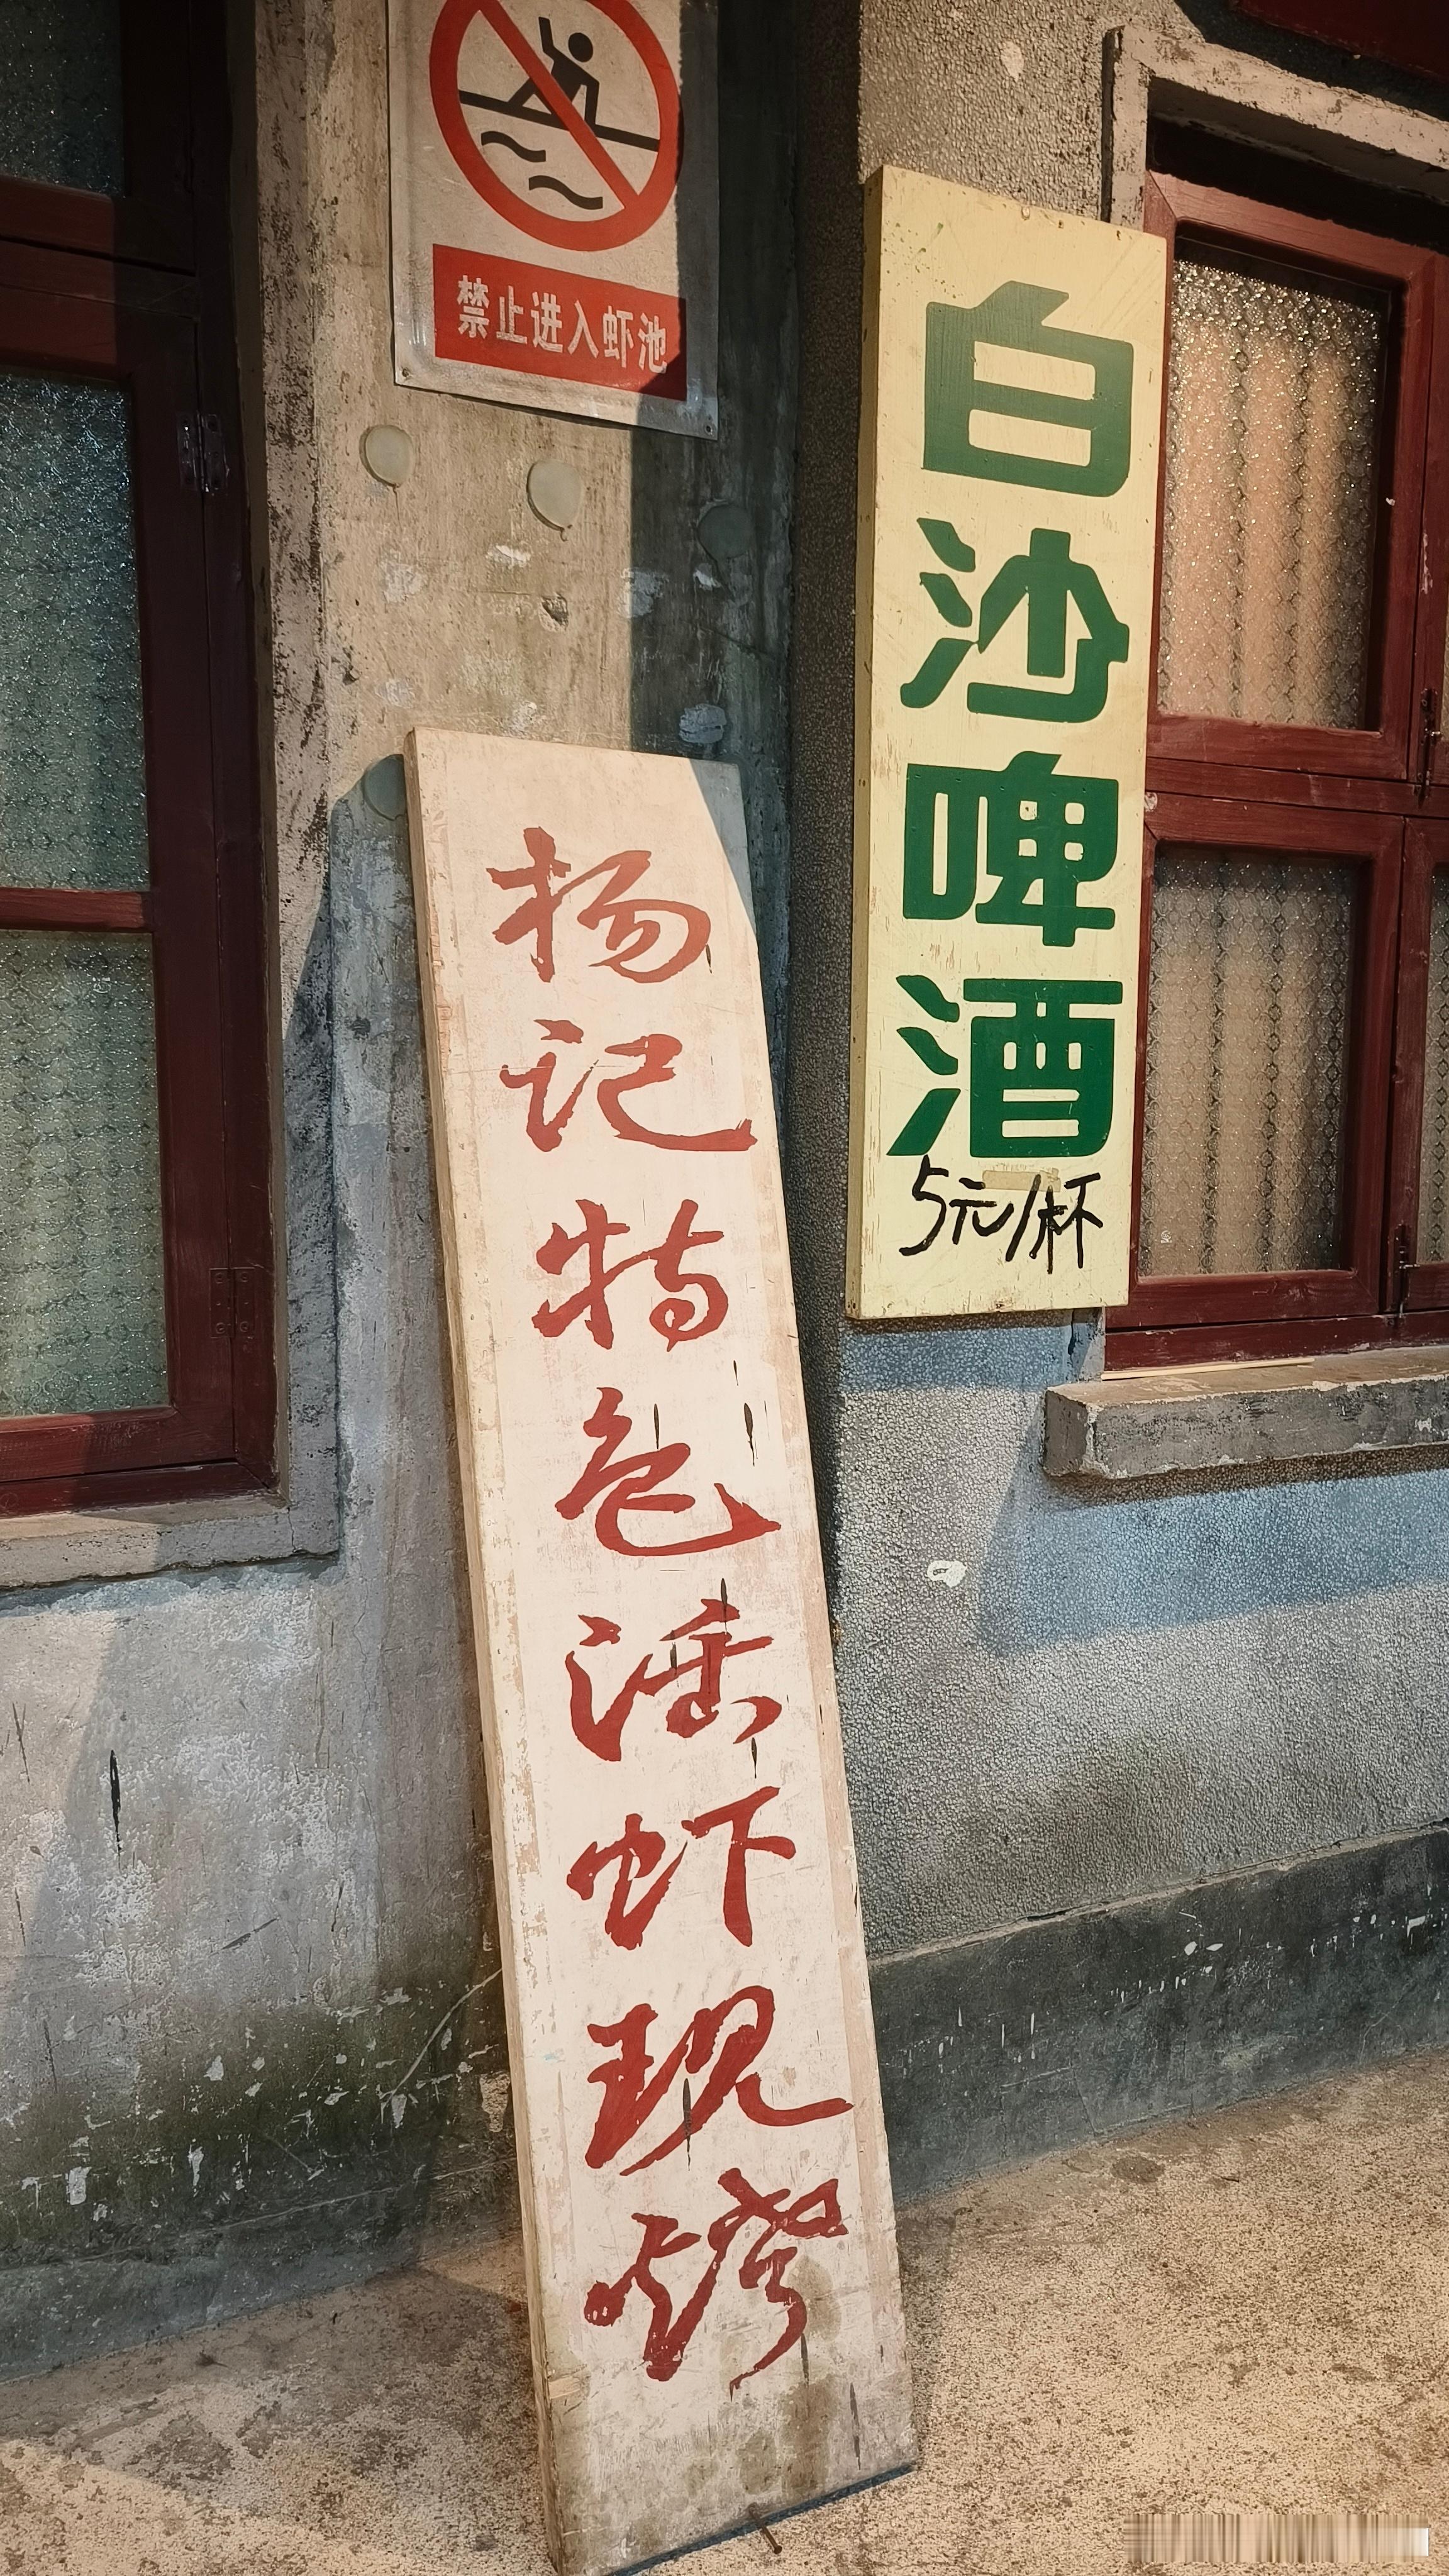 禁止进入虾池
白沙啤酒
5元/杯
杨记特色活虾现烤